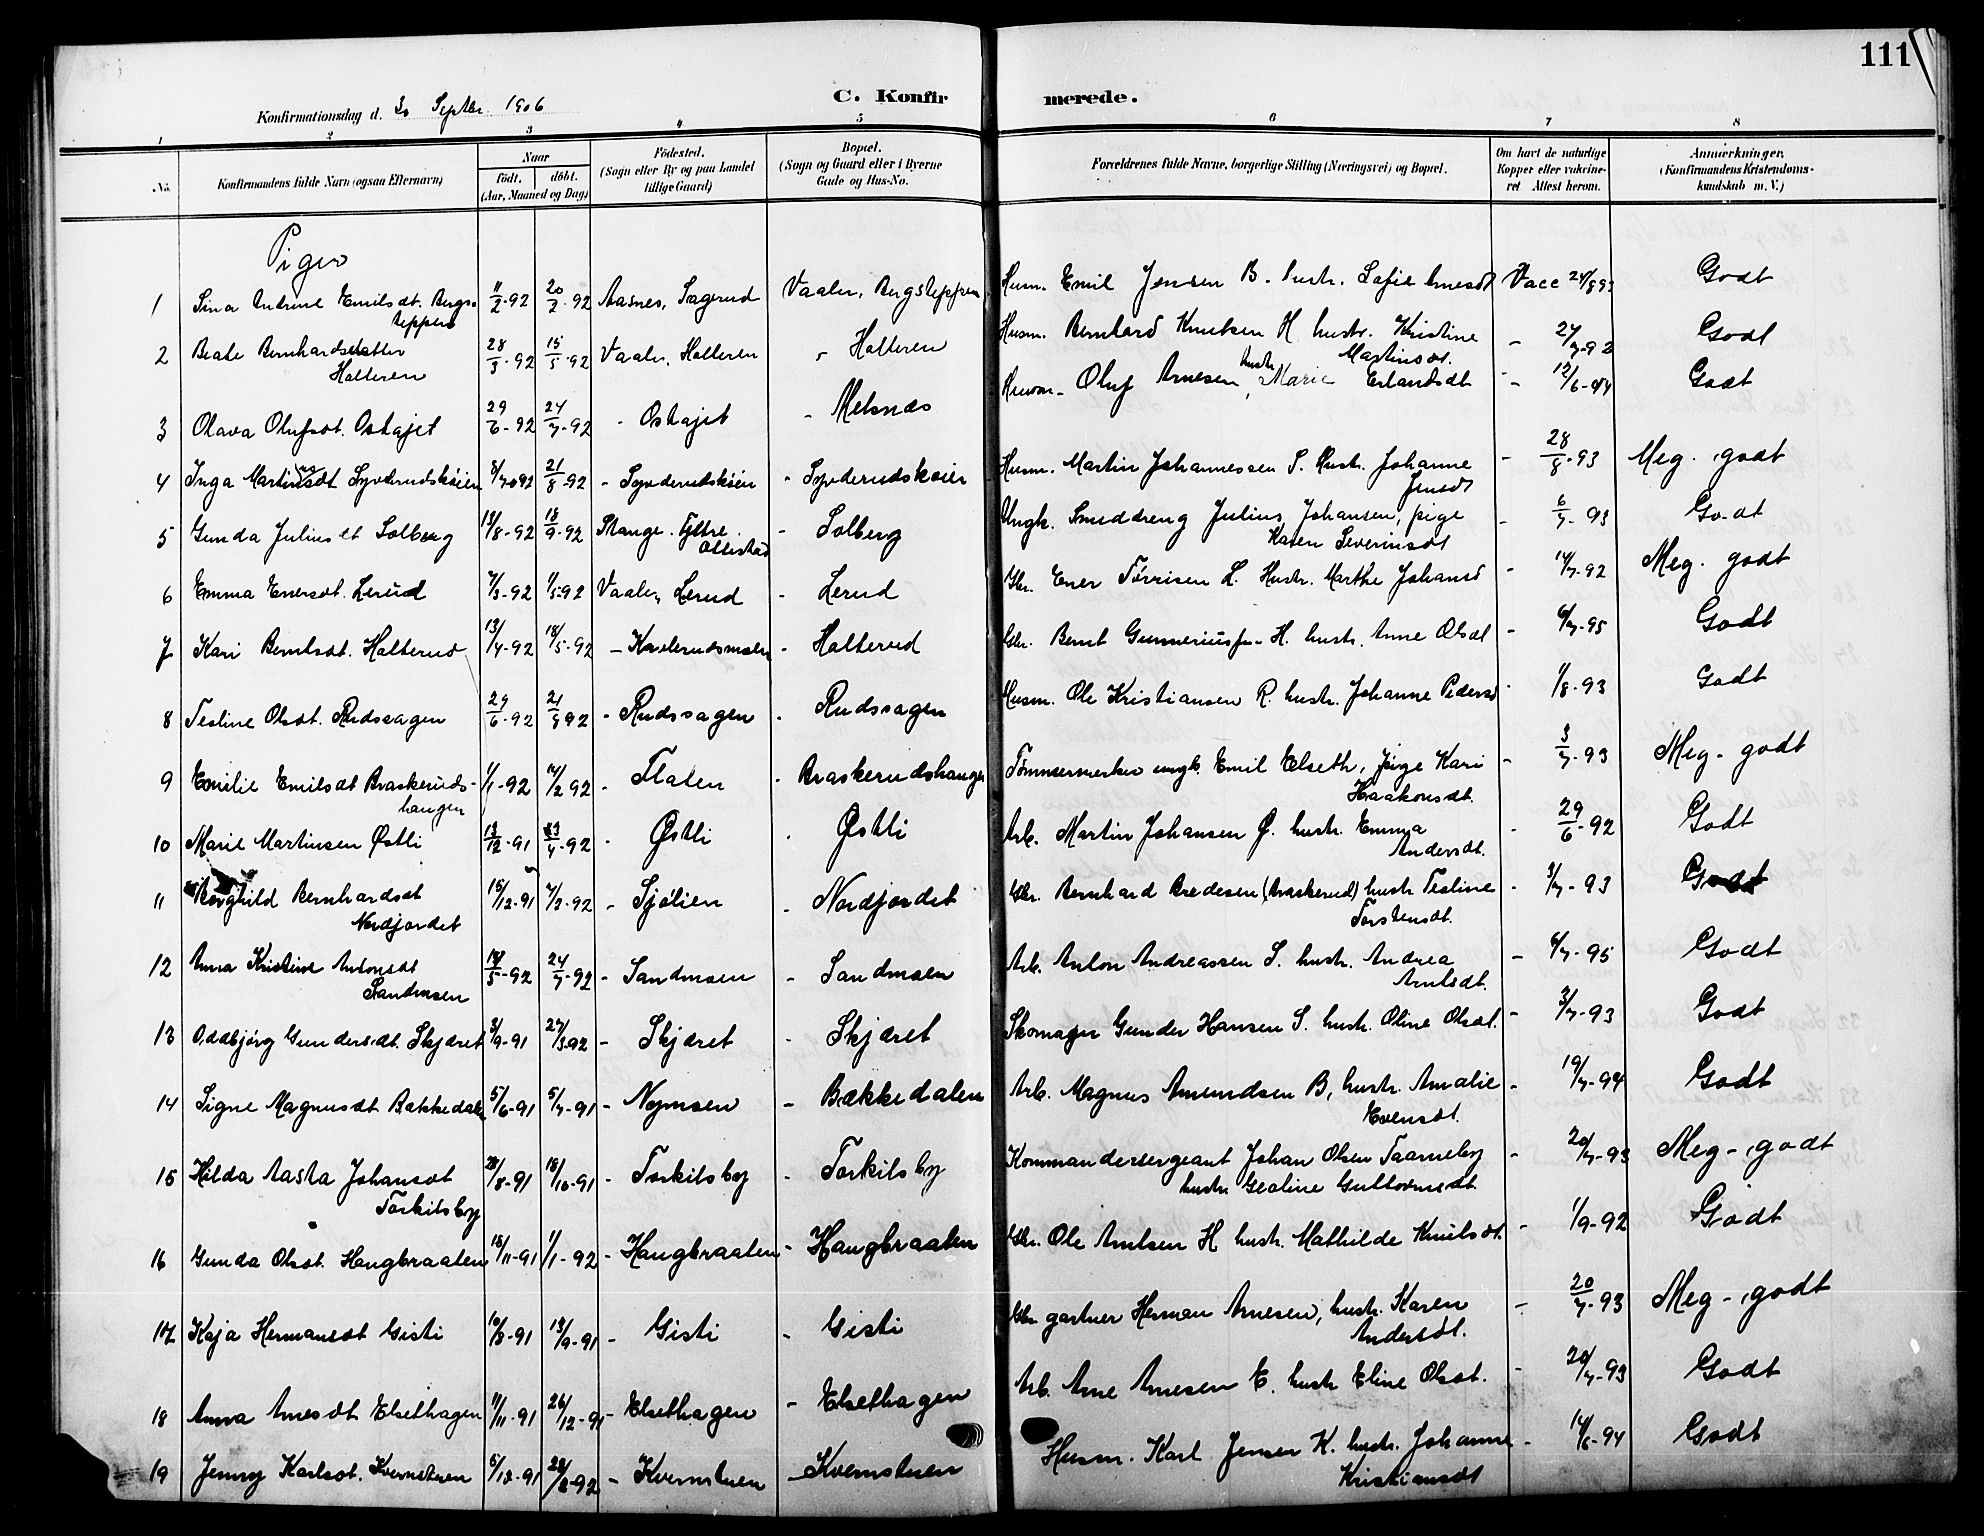 111
C. Konfirmerede.
Konfirmationsdag d. 30 Septbr. 1906
1 2 3 4 5 6 7 8
No.
Konfirmandens fulde Navn (ogsaa Efternavn)
Naar
födt. döbt.
(Aar, Maaned og Dag)
Födested.
(Sogn eller By og paa Landet
tillige Gaard)
Bopæl.
(Sogn og Gaard eller i Byerne
Gade og Hus-No.
Forældrenes fulde Navne, borgerlige Stilling (Næringsvei) og Bopæl.
Om havt de naturlige
Kopper eller vakcine-
ret. Attest herom.
Anmærkninger.
(Konfirmandens Kristendoms-
kundskab m. V.)
Piger
1 Sina Emilsdt. Bergs- 11/2-92 20/3-92 Aasnes, Sagerud Vaaler, Bergsteppen Husm. Emil Jensen B. hustr. Sofie Arnesdt Vacc 24/8 93 Godt
teppen
2 Beate Bernhardsdatter 28/3-92 15/5-92 Vaaler, Holteren " Holteren Husm. Bernhard Knutsen H hustr. Kristine - 24/7-92 Godt
Holteren Martinsdt.
3 Olava Olufsdt. Oshajet 29/6-92 24/7-92 - Oshajet - Melsnæs Husm. Oluf Arnesen, hustr. Marie Erlandsdt - 12/6-94 Godt
4 Inga Martinsdt Syverudsköien 8/7 92 21/8-92 - Syverudskoien - Syverudskoien Husm. Martin Johannessen S. Hustr. Johanne - 28/8-93 Meg. godt
Jensdt
5 Gunda Juliusdt Solberg 13/8-92 18/9-92 Stange. Ottestad - Solberg Ungk. Smeddreng Julius Johansen, pige - 6/7-93 Godt
Karen Severinsdt
6 Emma Enersdt. Lerud 7/3-92 1/5-92 Vaaler, Lerud - Lerud Gbr. Ener Törrisen L. Hustr. Marthe Johansd - 14/7-92 Meg. godt
7 Kari Berntsdt. Halterud 13/4-92 18/5-92 - Kvalerudsmoen - Halterud Gbr. Bernt Gunnerius H. hustr. Anne Olsdt - 6/7-95 Godt
8 Tesline Olsdt. Rudssagen 29/6-92 21/8 92 - Rudssagen - Rudssagen Husm. Ole Kristiansen R. hustr. Johanne Pedersd - 1/8-93 Godt
9 Emilie Emilsdt Braskeruds- 1/1-92 14/2 92 - Flaten - Braskerudshangen Tømmermerker ungk. Emil Elseth, Pige Kari - 3/7-93 Meg- godt
hangen Haakonsdt.
10 Marie Martinsen Østli 13/12-91 -92 - Østli - Østli Arb. Martin Johansen Ø. hustr. Emma - 29/6-92 Godt
Andersdt.
11 Borghild Bernhardsdt 15/12-91 7/2-92 - Sjölien - Nordjordet Gbr. Bernhard Bredesen (Braskerud) hustr Tesline - 3/7-93 Godt
Nordjordet Torstensdt.
12 Anna Kristine Antonsdt -92 24/7-92 - Sandmoen - Sandmoen Arb. Anton Andreassen S. hustr. Andrea - 6/7-95 Godt
Sandmoen Arntsdt.
13 Oddbjörg Gundersdt. Skjæret 3/9-91 27/3 92 - Skjæret - Skjæret Skomager Gunder Hansen S. hustr. Oline Olsdt. - 3/7-93 Godt
14 Signe Magnusdt Bækkedalen 5/6-91 5/7-91 - Nymoen - Bækkedalen Arb. Magnus Amundsen B, hustr. Amalie - 19/7-94 Godt
Evensdt.
15 Hilda Aasta Johansdt 28/8-91 18/10-91 - Torkilsby - Torkilsby Kommandersergeant Johan Olsen Taarneby - 20/7-93 Meg-, godt
Torkilsby hustr. Geoline Guttormsdt.
16 Gunda Olsdt. Haugbraaten 18/11-91 1/1-92 - Haugbraaten - Haugbraaten Gbr. Ole Arntsen H hustr. Mathilde Knutsdt. - 1/9-92 Godt
17 Kaja Hermansdt Gisti 10/8-91 13/9-91 - Gisti - Gisti Gbr gartner Herman Arnesen, hustr. Karen - 20/7-93 Meg-, godt
Andersdt.
18 Anna Arnesdt Elsethagen 11/11-91 26/12-91 - Elsethagen - Elsethagen Arb. Arne Arnesen E. hustr Eline Olsdt. - 20/7-93 Godt
19 Jenny Karlsdt. Kvernstuen 5/12-91 28/2-92 - Kvernstuen - Kvernstuen Husm. Karl Jensen K. hustr. Johanne - 14/6-94 Godt
Kristiansdt